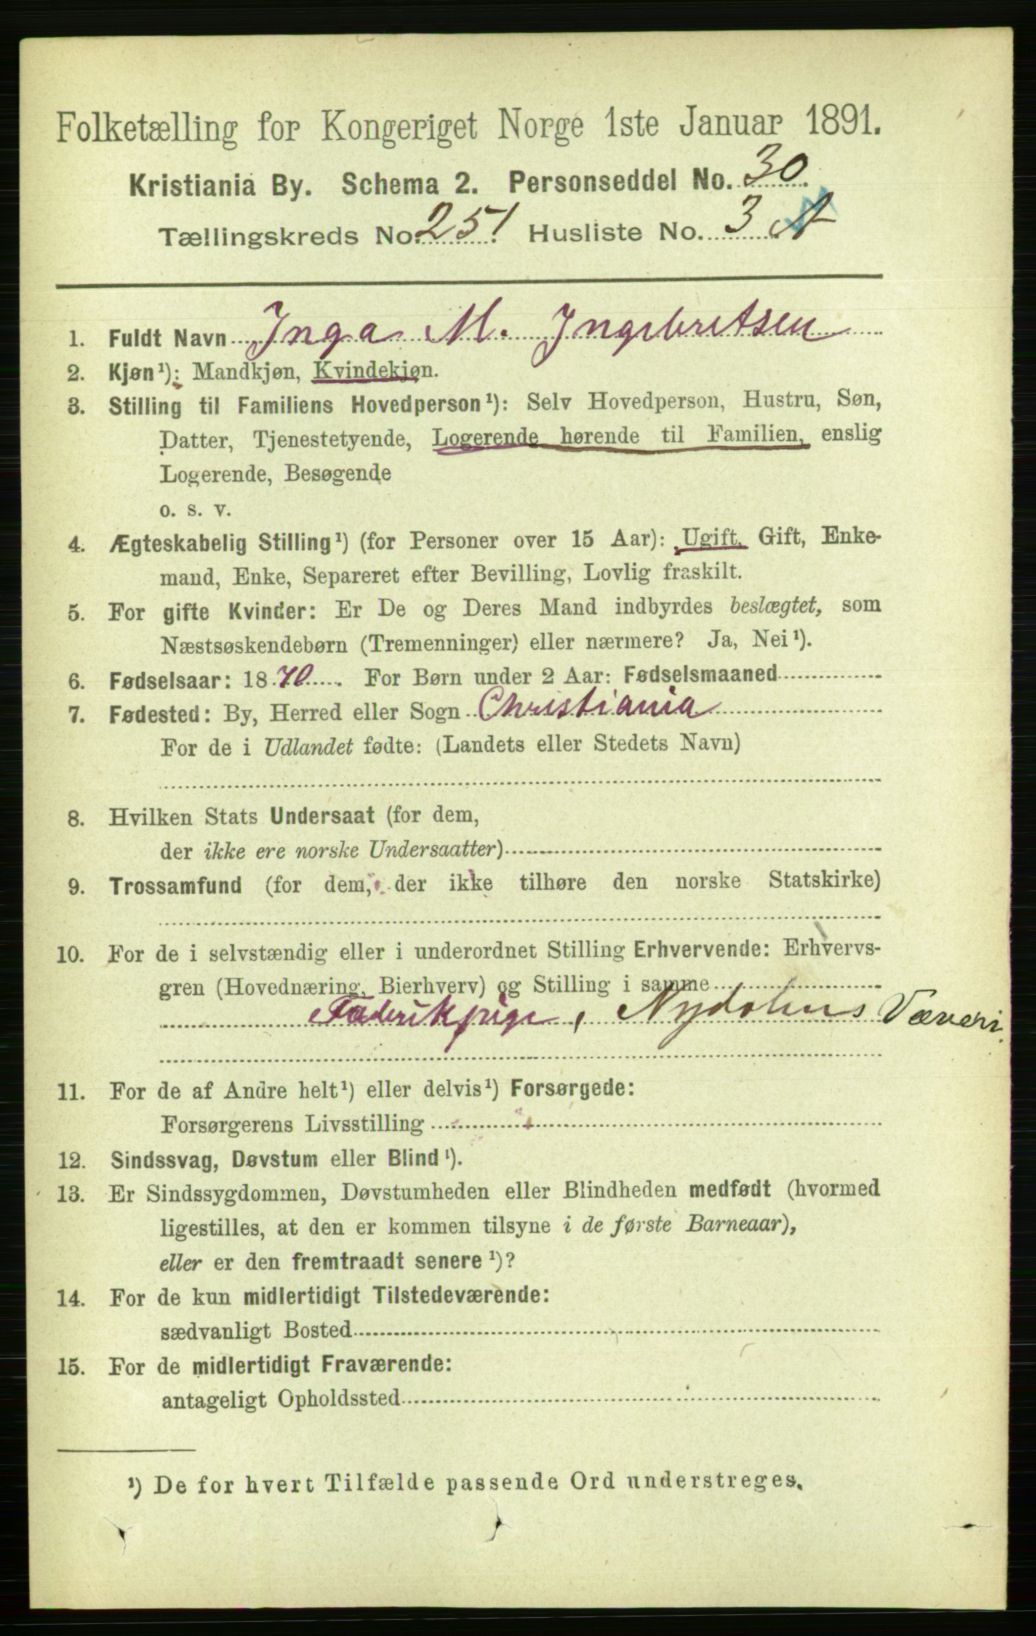 Folketælling for Kongeriget Norge 1ste Januar 1891.
Kristiania By. Schema 2. Personseddel No. 30.
Tællingskreds No. 251. Husliste No. 3 A
1. Fuldt Navn Inga M. Ingebretsen
2. Kjøn¹): Mandkjøn, Kvindekjøn.
3. Stilling til Familiens Hovedperson¹): Selv Hovedperson, Hustru, Søn,
Datter, Tjenestetyende, Logerende hørende til Familien, enslig
Logerende, Besøgende
o. s. v.
4. Ægteskabelig Stilling¹) (for Personer over 15 Aar): Ugift, Gift, Enke-
mand, Enke, Separeret efter Bevilling, Lovlig fraskilt.
5. For gifte Kvinder: Er De og Deres Mand indbyrdes beslægtet, som
Næstsøskendebørn (Tremenninger) eller nærmere? Ja, Nei¹).
6. Fødselsaar: 1870. For Børn under 2 Aar: Fødselsmaaned
7. Fødested: By, Herred eller Sogn Christiania
For de i Udlandet fødte: (Landets eller Stedets Navn)
8. Hvilken Stats Undersaat (for dem,
der ikke ere norske Undersaatter)
9. Trossamfund (for dem, der ikke tilhøre den norske Statskirke)
10. For de i selvstændig eller i underordnet Stilling Erhvervende: Erhvervs-
gren (Hovednæring, Bierhverv) og Stilling i samme
Fabrikpige, Nydalens Væveri.
11. For de af Andre helt¹) eller delvis¹) Forsørgede:
Forsørgerens Livsstilling
12. Sindssvag, Døvstum eller Blind¹).
13. Er Sindssygdommen, Døvstumheden eller Blindheden medfødt (hvormed
ligestilles, at den er kommen tilsyne i de første Barneaar),
eller er den fremtraadt senere¹)?
14. For de kun midlertidigt Tilstedeværende:
sædvanligt Bosted
15. For de midlertidigt Fraværende:
antageligt Opholdssted
¹) De for hvert Tilfælde passende Ord understreges.